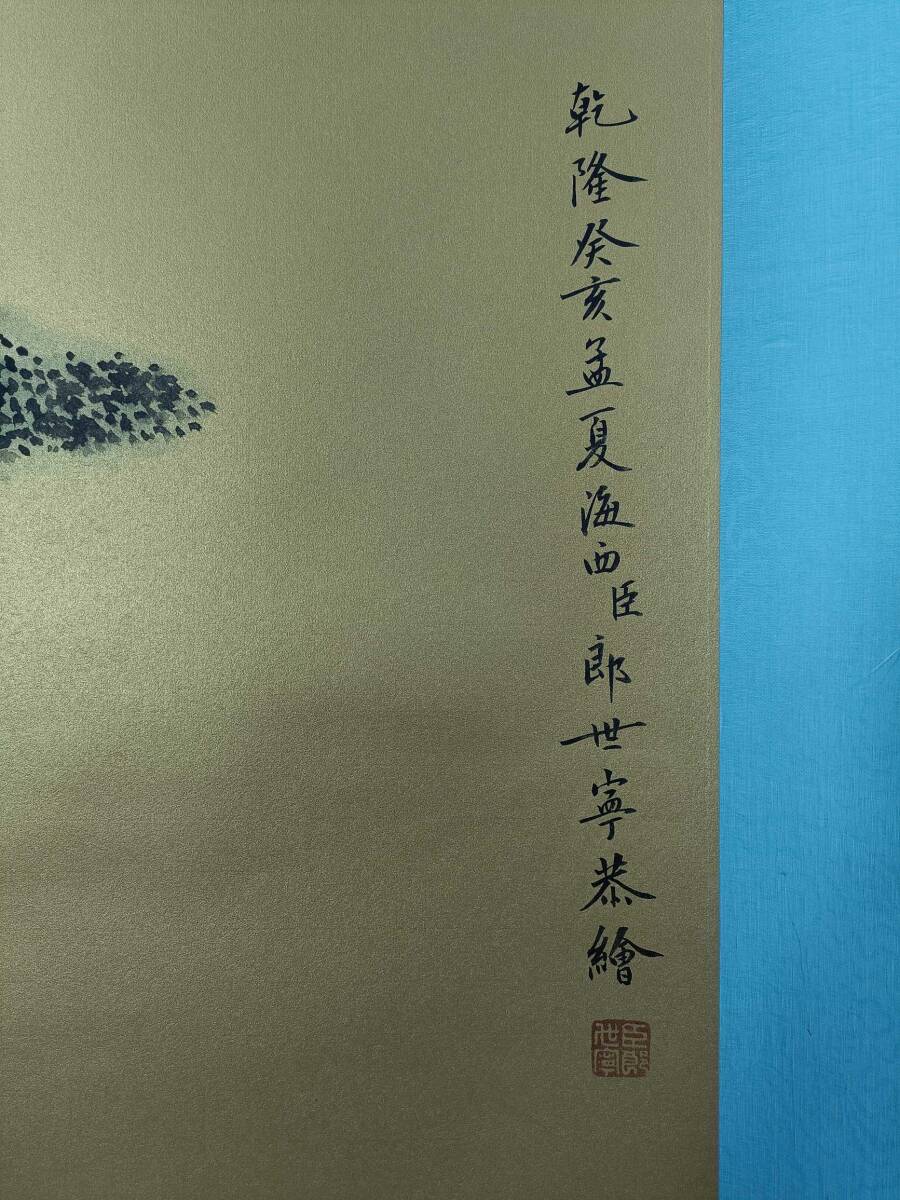 乾隆癸亥孟夏海西臣郎世寧恭繪
臣郎
世寧